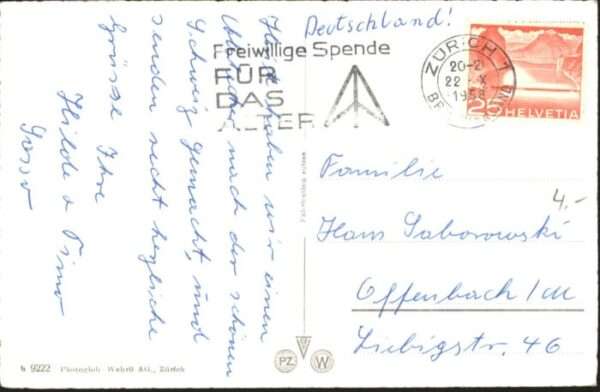 Deutschland!
Freiwillige Spende
FÜR
DAS
ALTER
ZÜRICH 1
22 X
HELVETIA
25
Heute haben wir einen
nach der schönen
Schweiz gemacht, und
senden recht herzliche
Grüsse Ihre
Hilde & Timo
Familie
Hans Saborowski
Offenbach/M
Liebigstr. 46
4.-
9222 Photoglob-Wehrli AG., Zürich
PZ W